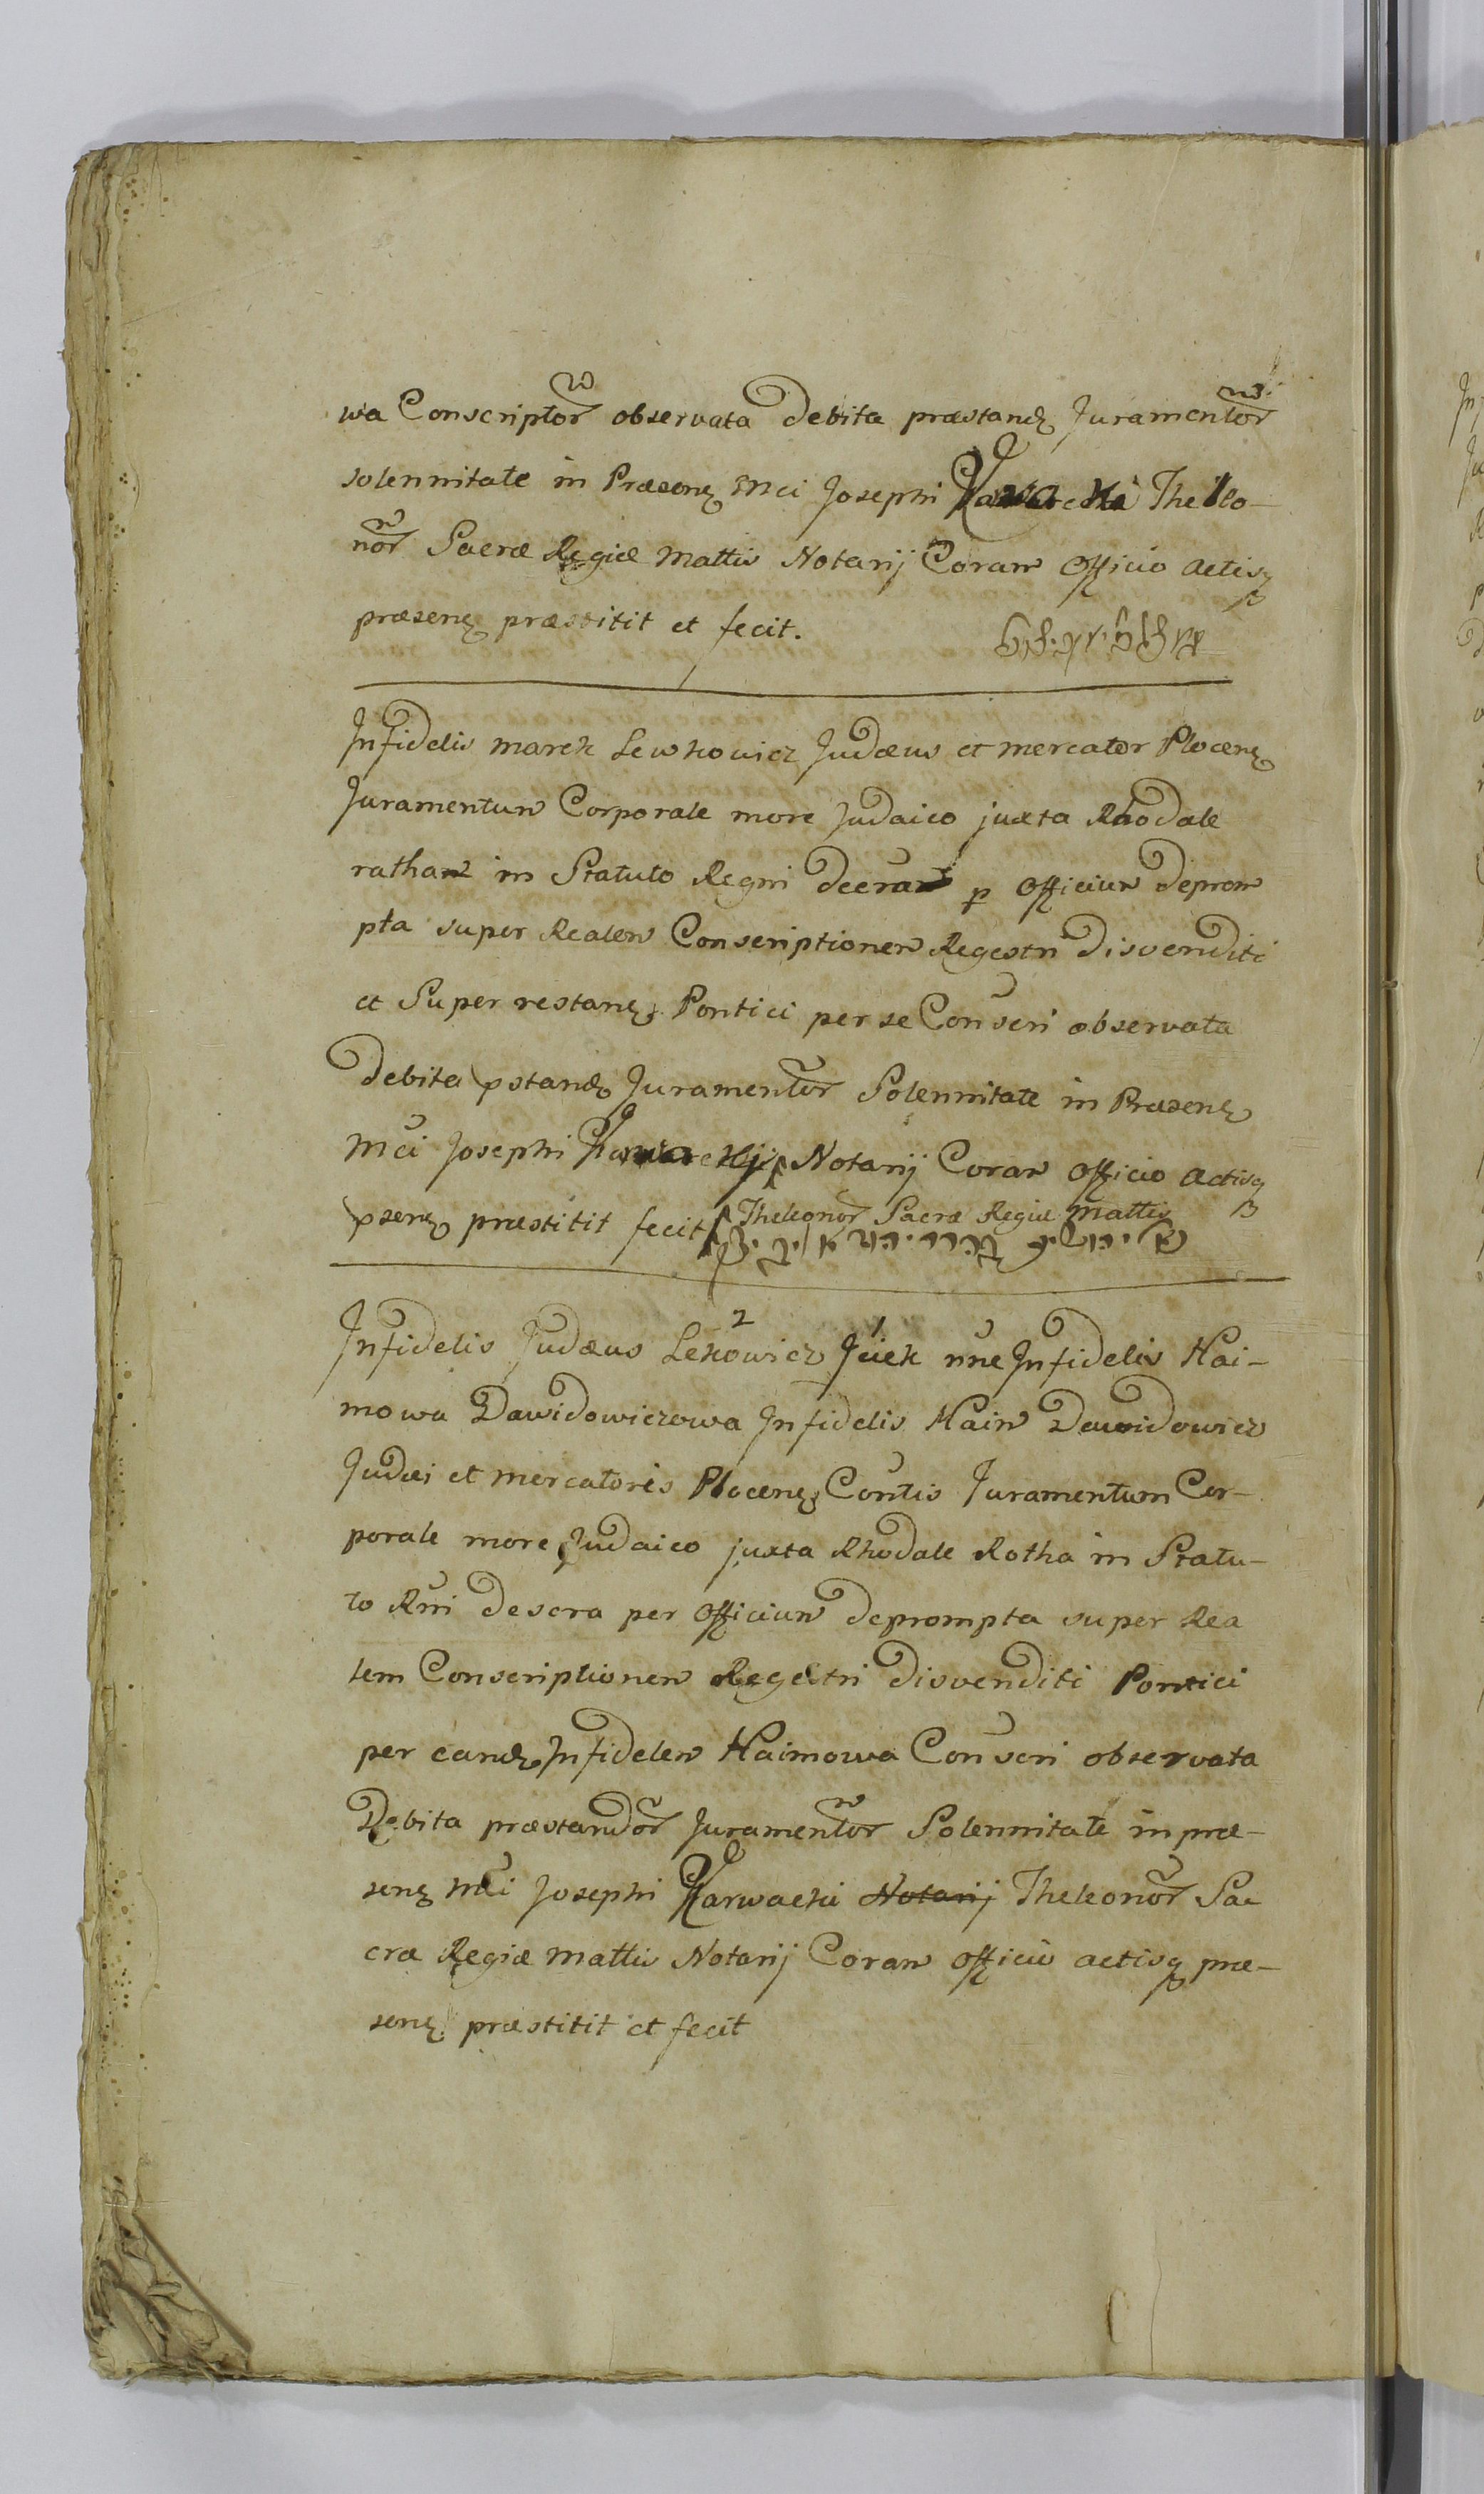 wa Conscriptor observata Debita præstand Juramentor
solennitate in Præsen Mci Josephi Karwacki Thelo-
nor Sacræ Regiæ Mattis Notarij Coram Officio actisq
præsen præstitit et fecit.
Infidelis Marek Lewkowicz Judæus et Mercator Plocen
Juramentum Corporale more Judaico juxta Rhodale
ratham in Statuto Regni Decram p Officium Deprom
pta super Realem Conscriptionem Regestri Disvenditi
et Super restan Pontici per se Conscri observata
Debita pstand Juramentor Solennitate in Præsen
Mci Josephi Karwackij Notarij Coram Officio Actisq
Theleonor Sacræ Regiæ Mattis
psen præstitit fecit
2 1
Infidelis Judæus Lekowicz Jciek nne Infidelis Hai-
mowa Dawidowiczowa Infidelis Haim Dawidowicz
Judæi et Mercatoris Plocen Contis Juramentum Cor-
porale more Judaico juxta Rhodale Rotha in Statu-
to Rni Descra per Officium Deprompta super Rea
lem Conscriptionem Regestri Disvenditi Pontici
per eand Infidelem Haimowa Conscri observata
Debita præstandor Juramentor Solennitate in præ-
sen Mci Josephi Karwacki Notarij Theleonor Sa
cræ Regiæ Mattis Notarij Coram Officio actisq præ-
sen præstitit et fecit